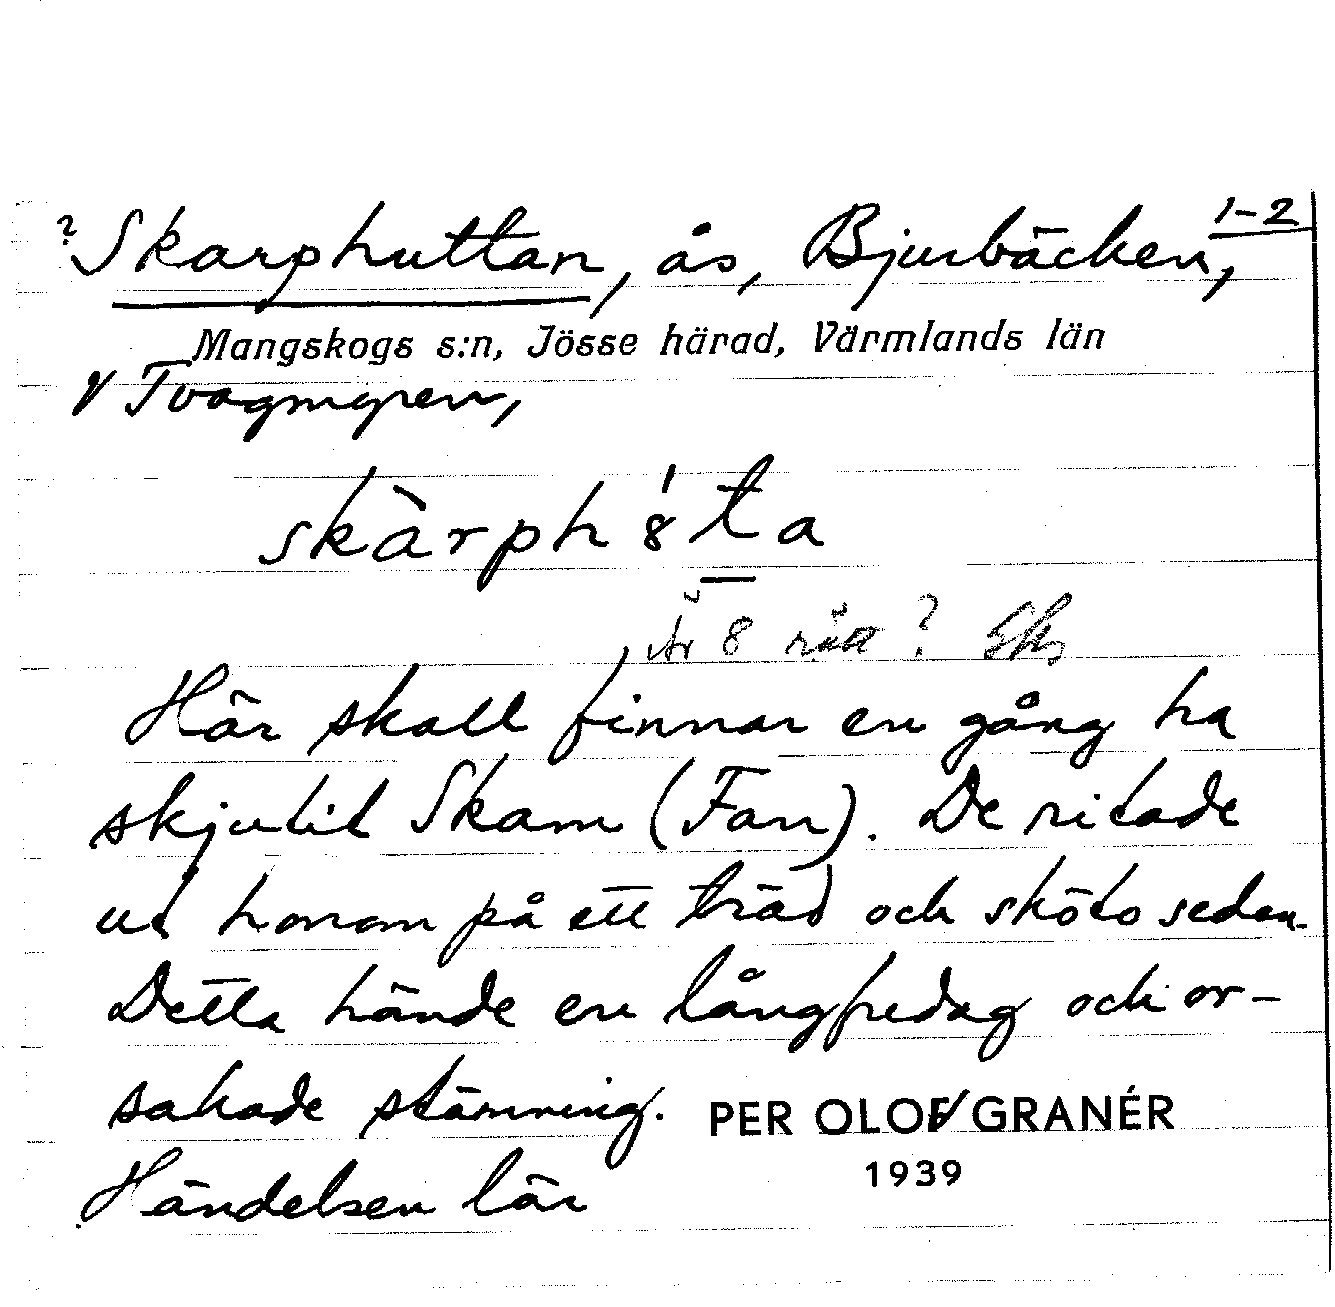 ? Skarphuttan, ås, Bjurbäcken, 1-2
Mangskogs s:n, Jösse härad, Värmlands län
√ Tvagmyren,
skàrph8́ta
Är 8 rätt?
Här skall finnar en gång ha
skjutit Skam (Fan). De ritade
ut honom på ett träd och sköto sedan.
Detta hände en långfredag och or-
sakade stämning. PER OLOF GRANÉR
1939
Händelsen lär